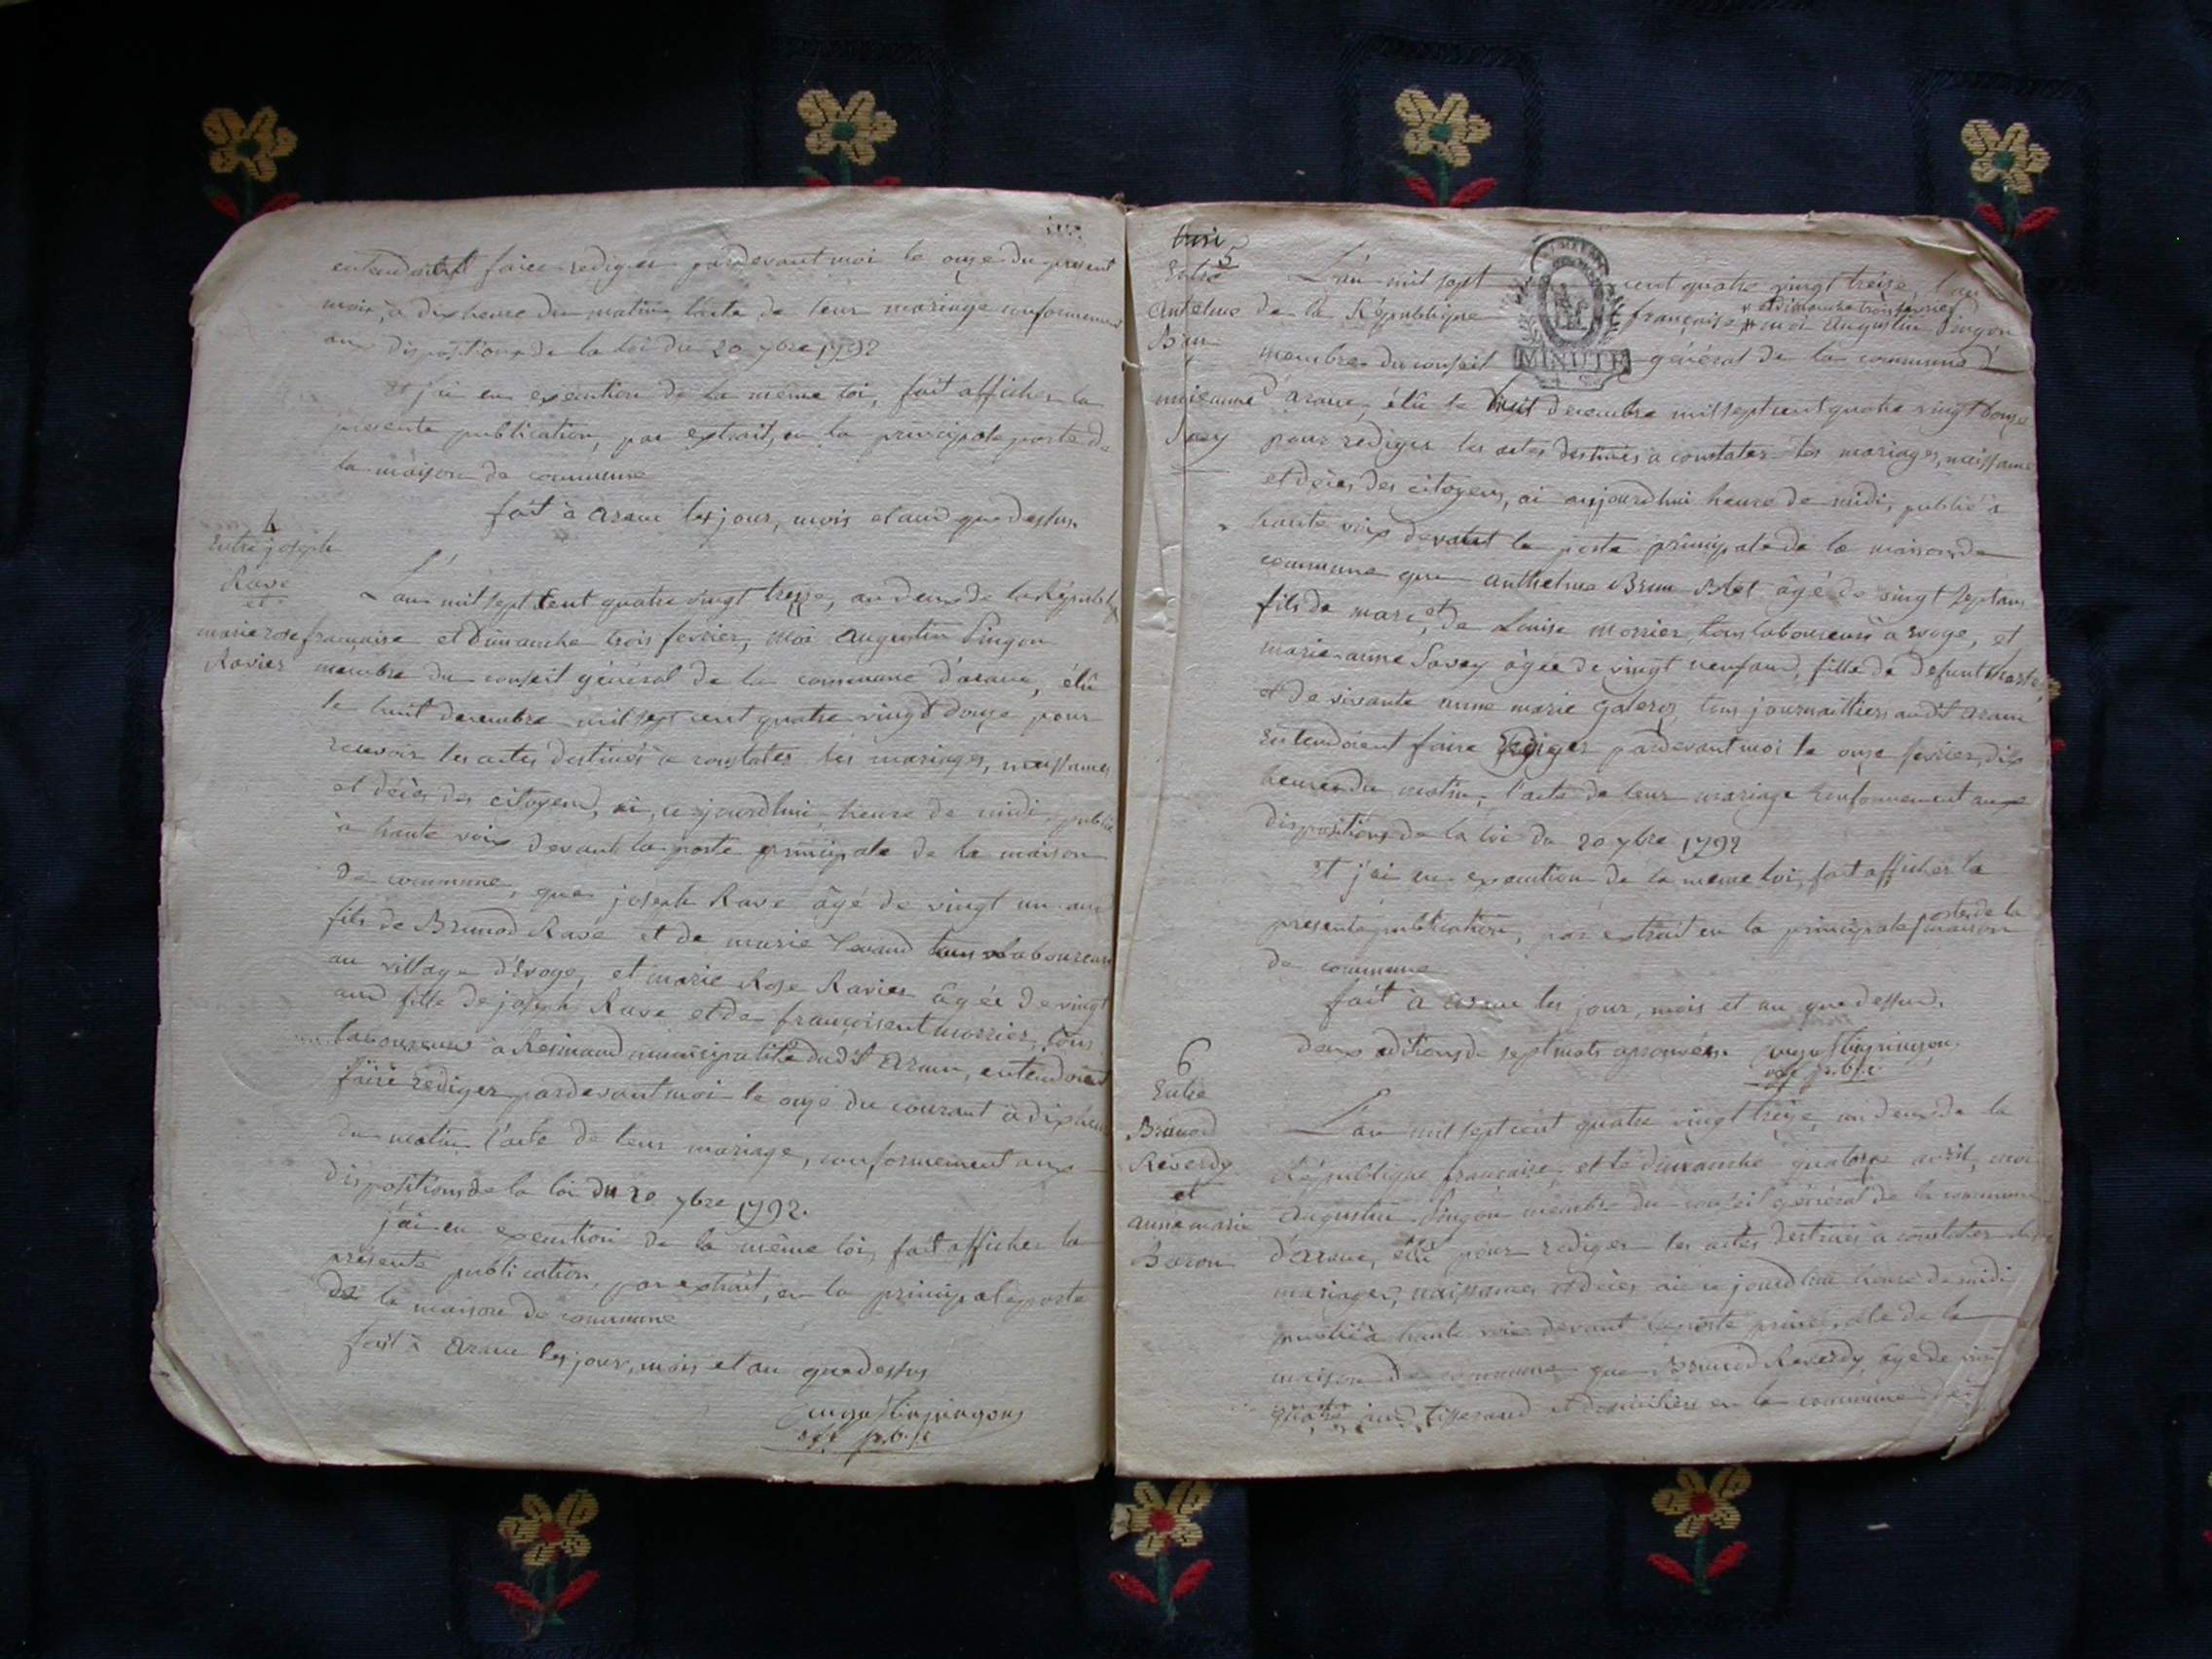 entendoient faire rediger pardevant moi le onze du present
mois, à dix heure du matin, l'acte de leur mariage conformement
aux dispositions de la loi du 20 7bre 1792
et j'ai en exécution de la même loi, fait afficher la
presente publication, par extrait, en la principale porte de
la maison de commune
fait à arane les jour, mois et and que dessus.
4
Entre joseph
Rave
et
marie rose
Ravier
L'an mil sept cent quatre vingt treize, an deux de la Républ
française et Dimanche trois fevrier, moi augustin Pingon
membre du conseil général de la commune d'arane, élû
le huit decembre mil sept cent quatre vingt douze pour
recevoir les actes destinés à constater les mariages, naissances
et décès des citoyens, ai, cejourdhui, heure de midi, publié
à haute voix devant la porte principale de la maison
de commune, que joseph Rave âgé de vingt un ans
fils de Brunod Rave et de marie tous laboureurs
au village d'Evoge, et marie Rose Ravier âgée de vingt
and fille de joseph Rave et de morrier, tous
laboureurs à Resinand municipalité dudit arane, entendoient
faire rediger pardevant moi le onze du courant à dix heure
du matin l'acte de leur mariage, conformement aux
dispositions de la loi du 20 7bre 1792.
j'ai en execution de la même loi, fait afficher la
présente publication, par extrait, en la principale porte
de la maison de commune
fait à arane les jour, mois et an que dessus
augustin pingon
5
Entre
antelme
Brun
marianne
Savey
L'an mil sept cent quatre vingt treize, l'an
de la République française # # et dimanche trois fevrier moi augustin Pingon
membre du conseil MINUTE général de la commune d'
arane, élû le huit decembre mil sept cent quatre vingt douze
pour rediger les actes destinés à constater les mariages, naissances
et décès des citoyens, ai aujourdhui heure de midi, publié à
haute voix devant la porte principale de la maison de
commune que anthelme Brun Blet âgé de vingt sept ans
fils de marc, et de Louise morrier, tous laboureurs à Evoge, et
marie anne Savey âgée de vingt neuf and, fille de defunt
et de vivante anne marie tous journailliers audit arane
entendoient faire rediger pardevant moi le onze fevrier, dix
heures du matin, l'acte de leur mariage conformement aux
dispositions de la loi du 20 7bre 1792
et j'ai en execution de la meme loi, fait afficher la
presente publication, par extrait en la principale porte de la maison
de commune
fait à arane les jour, mois et an que dessus.
deux aditions de sept mots aprouvées. augustin pingon.
6
Entre
Brunod
Reverdy
et
anne marie
Baron
L'an mil sept cent quatre vingt treize, an deux de la
République française, et le dimanche quatorze avril, moi
augustin Pingon membre du conseil général de la commune
d'arane, élû pour rediger les actes destinés à constater les
mariages, naissances et décès ai ce jourdhui heure de midi
publié à haute voix devant la porte principale de la
maison de commune que Brunod Reverdy, âgé de vingt
quatre and, tisserand et domicilié en la commune